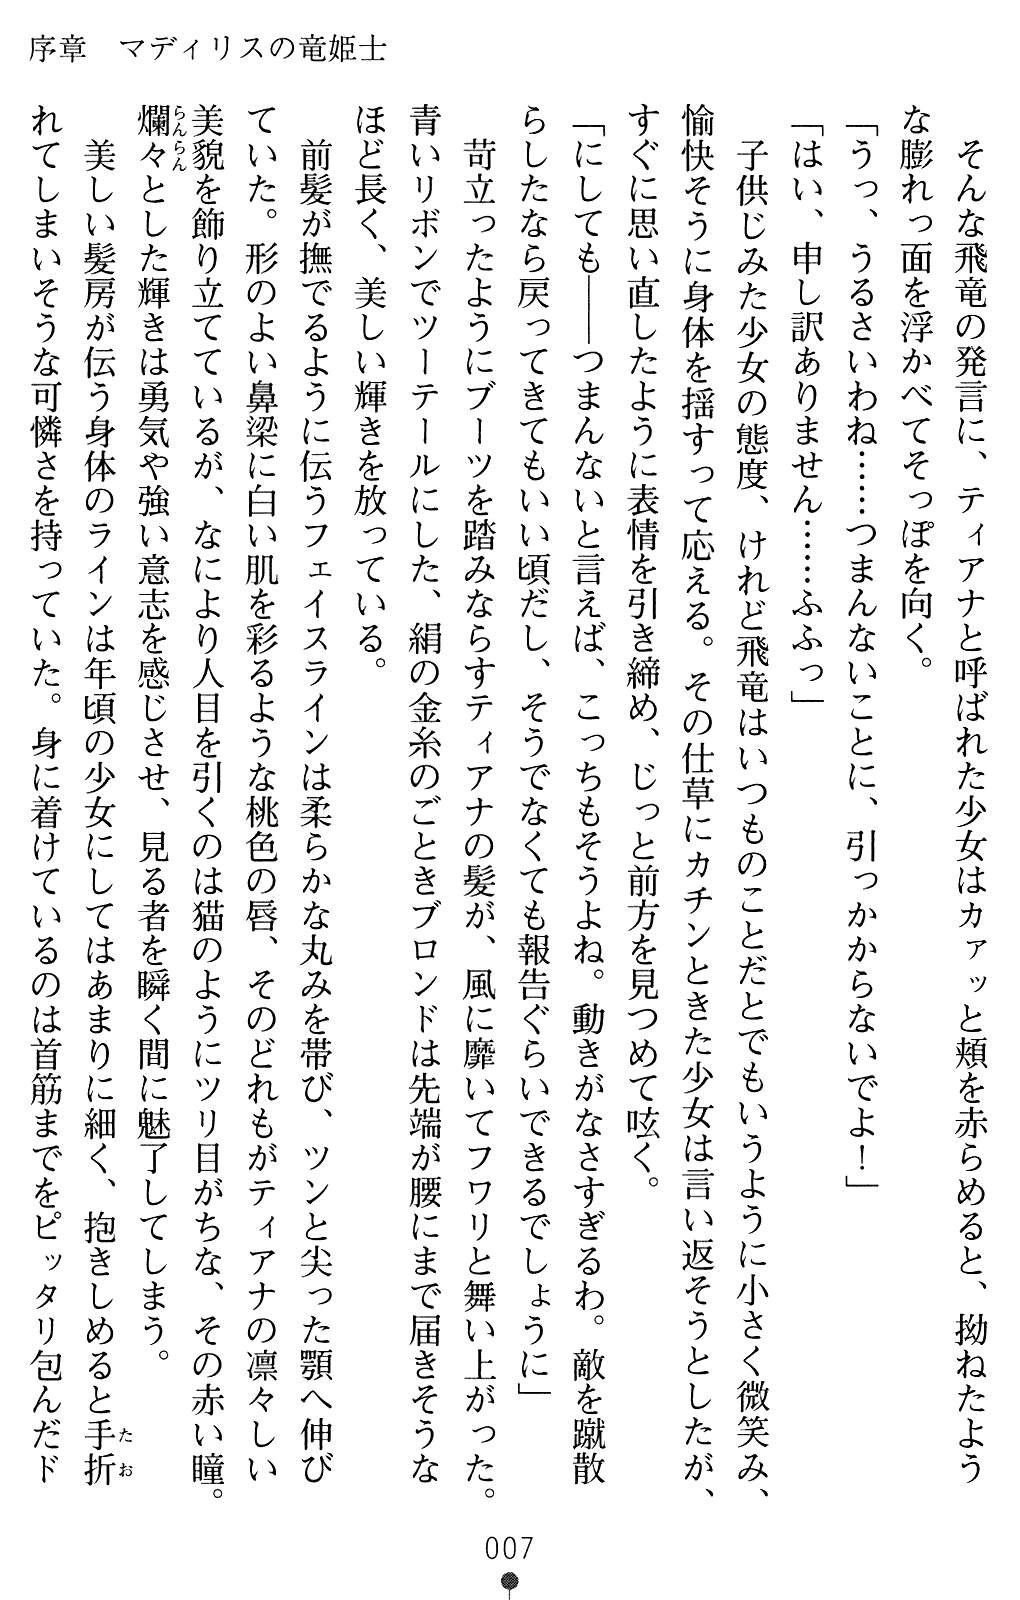 序章　マディリスの竜姫士
　そんな飛竜の発言に、ティアナと呼ばれた少女はカァッと頬を赤らめると、拗ねたよう
な膨れっ面を浮かべてそっぽを向く。
「うっ、うるさいわね……つまんないことに、引っかからないでよ！」
「はい、申し訳ありません……ふふっ」
　子供じみた少女の態度、けれど飛竜はいつものことだとでもいうように小さく微笑み、
愉快そうに身体を揺すって応える。その仕草にカチンときた少女は言い返そうとしたが、
すぐに思い直したように表情を引き締め、じっと前方を見つめて呟く。
「にしても――つまんないと言えば、こっちもそうよね。動きがなさすぎるわ。敵を蹴散
らしたなら戻ってきてもいい頃だし、そうでなくても報告ぐらいできるでしょうに」
　苛立ったようにブーツを踏みならすティアナの髪が、風に靡いてフワリと舞い上がった。
青いリボンでツーテールにした、絹の金糸のごときブロンドは先端が腰にまで届きそうな
ほど長く、美しい輝きを放っている。
　前髪が撫でるように伝うフェイスラインは柔らかな丸みを帯び、ツンと尖った顎へ伸び
ていた。形のよい鼻梁に白い肌を彩るような桃色の唇、そのどれもがティアナの凛々しい
美貌を飾り立てているが、なにより人目を引くのは猫のようにツリ目がちな、その赤い瞳。
爛々とした輝きは勇気や強い意志を感じさせ、見る者を瞬く間に魅了してしまう。
らんらん
　美しい髪房が伝う身体のラインは年頃の少女にしてはあまりに細く、抱きしめると手折
たお
れてしまいそうな可憐さを持っていた。身に着けているのは首筋までをピッタリ包んだド
007